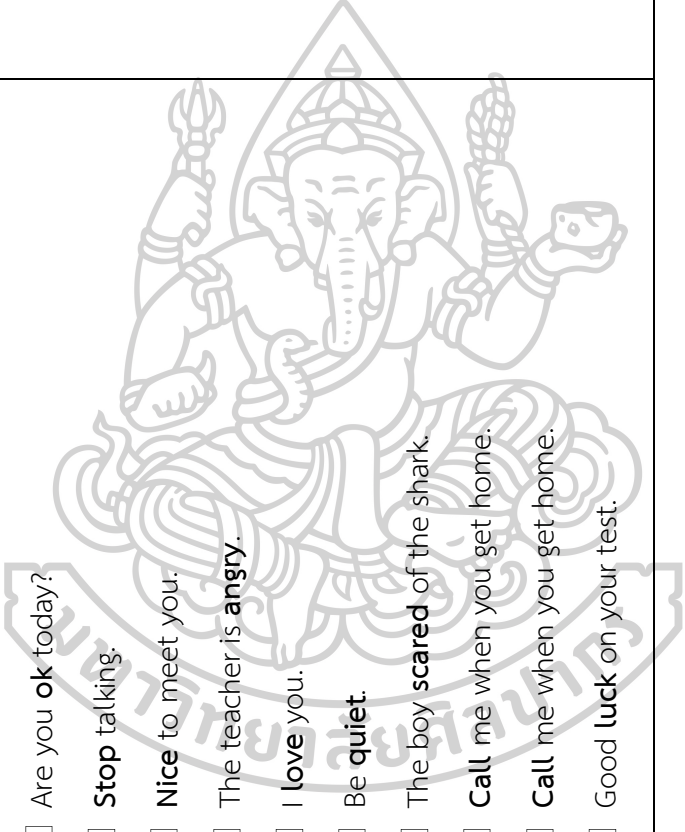 Are you ok today?
Stop talking.
Nice to meet you.
The teacher is angry.
I love you.
Be quiet.
The boy scared of the shark.
Call me when you get home.
Call me when you get home.
Good luck on your test.
มหาวิทยาลัยศิลปากร